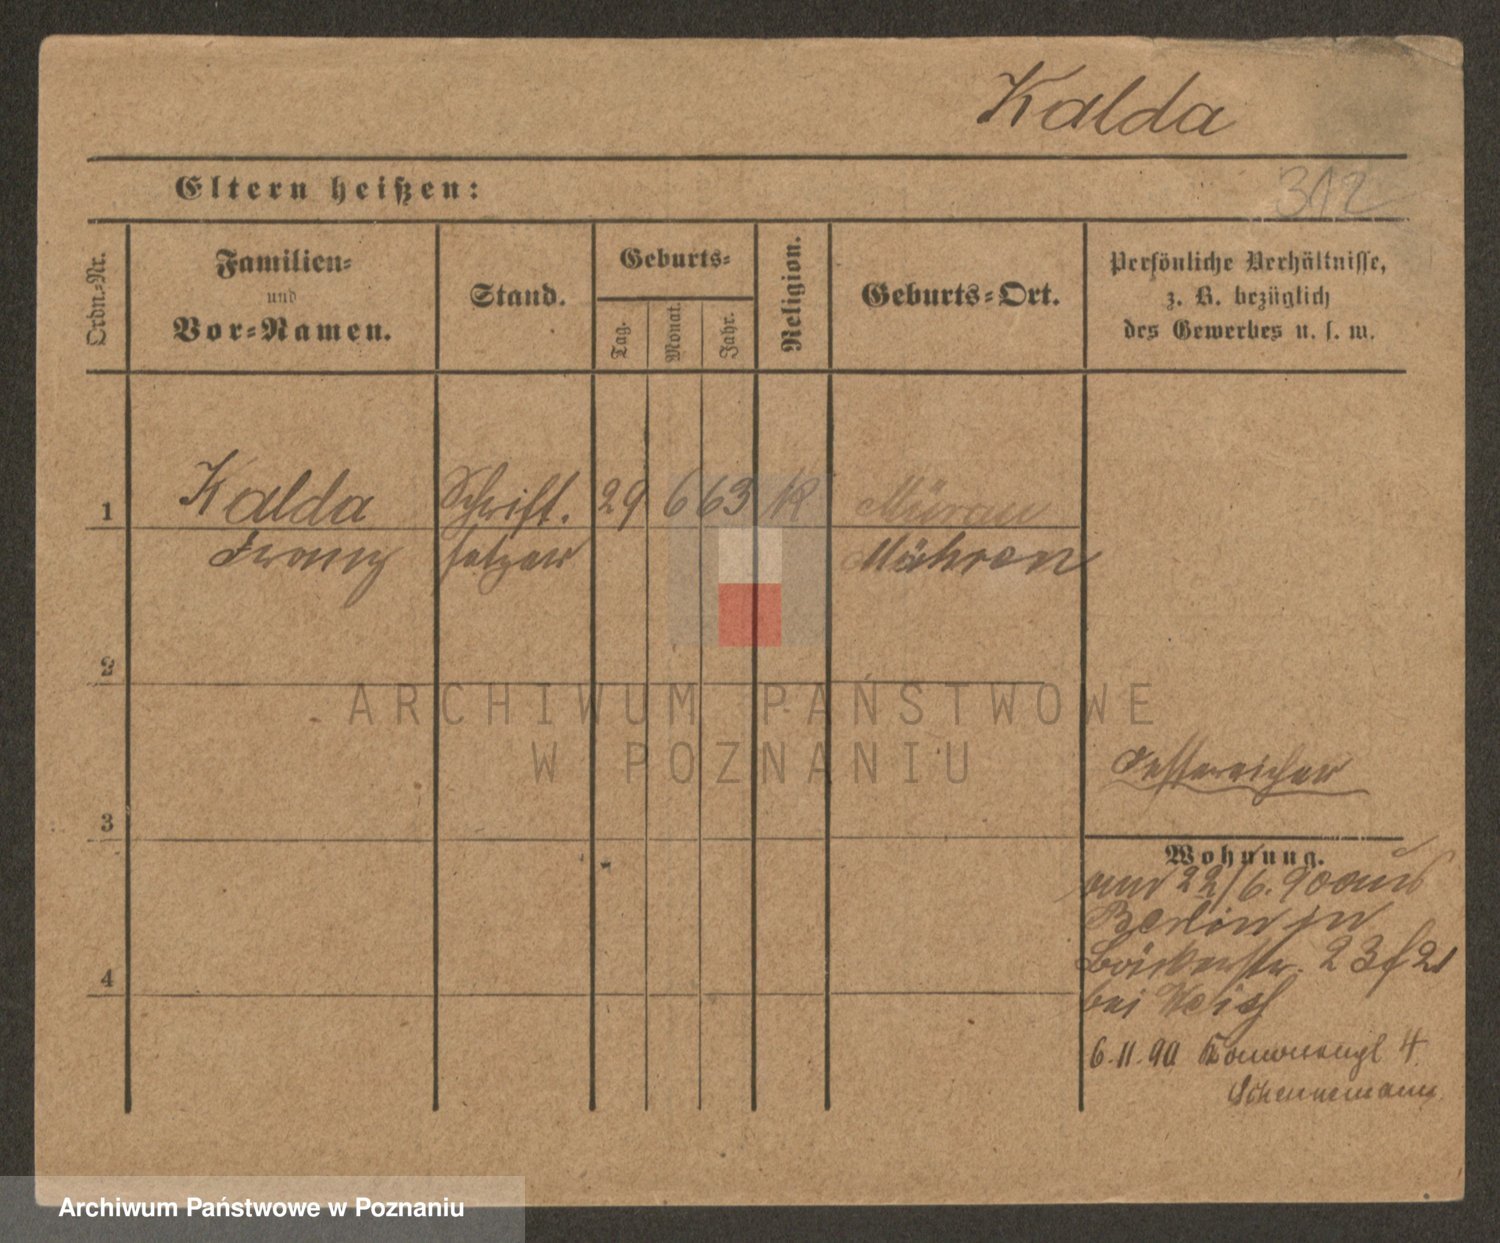 Kalda
312
Eltern heißen:
Ordn.-Nr.
Familien-
und
Vor-Namen.
Stand.
Geburts-
Tag.
Monat.
Jahr.
Religion.
Geburts-Ort.
Persönliche Verhältnisse,
z. B. bezüglich
des Gewerbes u. s. w.
1 Kalda Schrift. 29 6 63 K Mürau
Franz setzer Mähren
2
ARCHIWUM PAŃSTWOWE
W POZNANIU
Oesterreicher
3
Wohnung.
22/6.90 aus
Berlin in
Bäckerstr. 23
4
bei
6.11.90 4
Archiwum Państwowe w Poznaniu